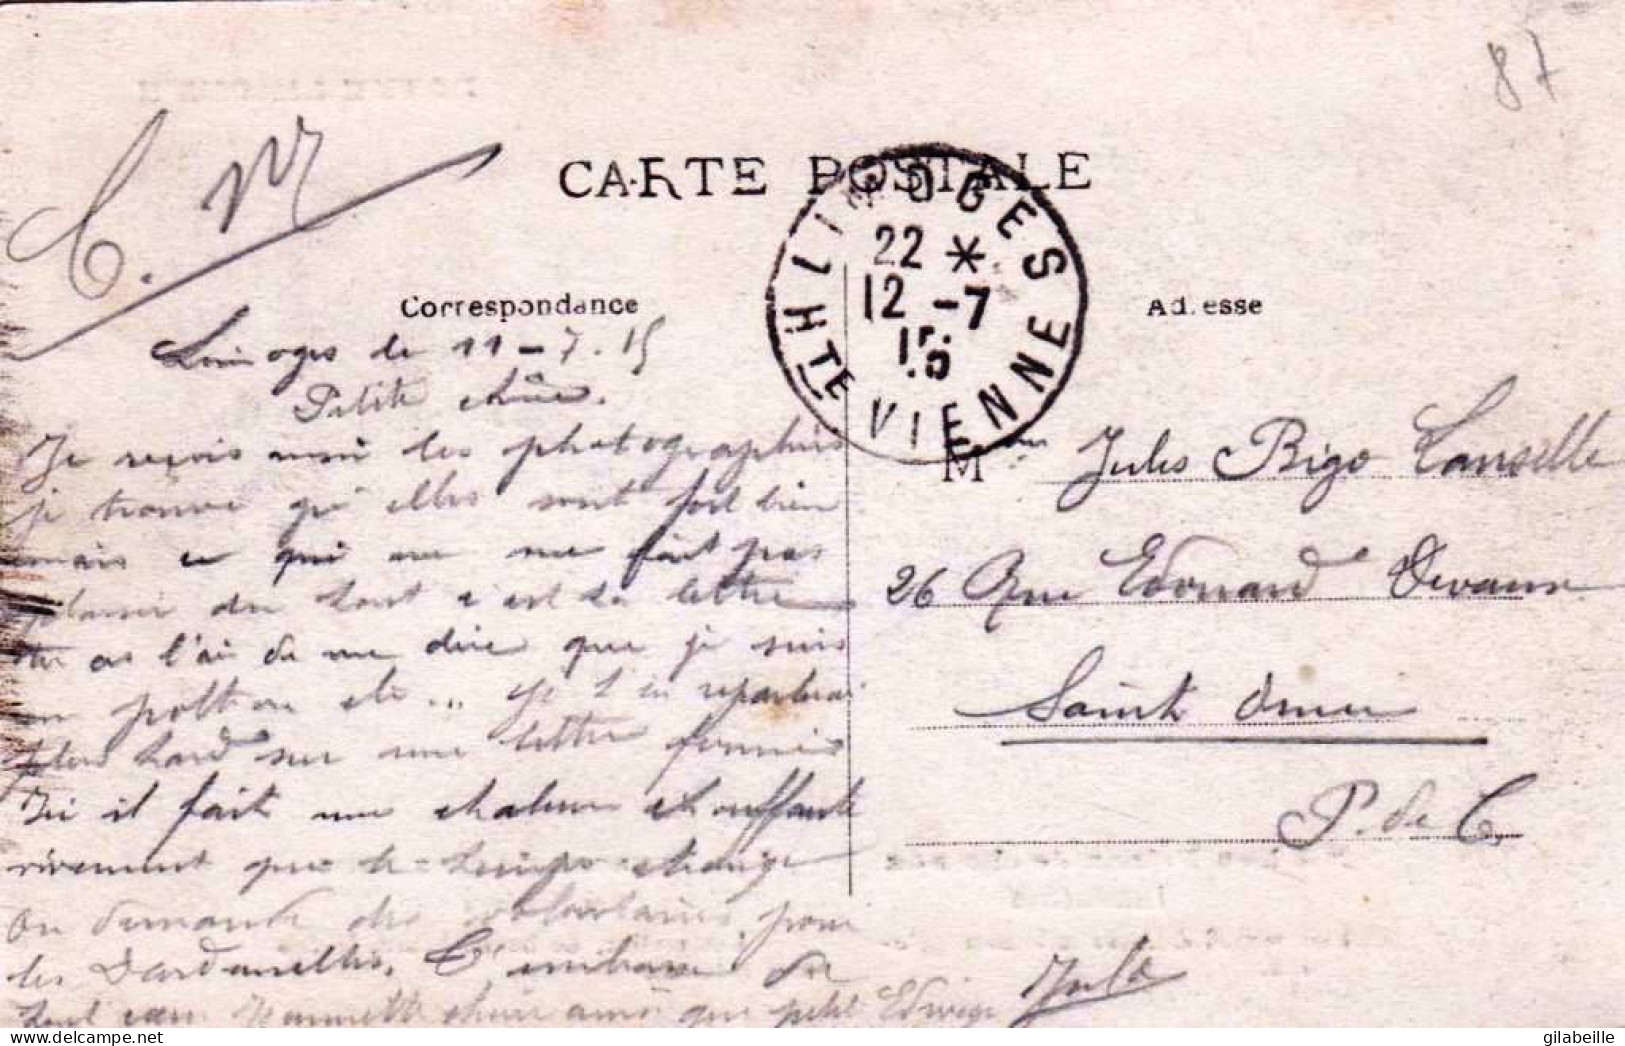 87
C. M
CARTE POSTALE
LIMOGES
22 *
12 -7
15
HTE VIENNE
Correspondance
Adresse
Limoges le 11-7.15
Petite chérie.
Je reçois les photographies
je trouve qu'elles sont fort bien
mais ce qui ne me fait pas
plaisir du tout c'est ta lettre
tu as l'air de me dire que je suis
un poltron etc... Je t'en reparlerai
plus tard sur une lettre fermée
Ici il fait une chaleur étouffante
vivement que le temps change
On demande des volontaires pour
les Dardanelles. T'embrasse de
tout cœur Jeannette chérie ainsi que petit Edwige
Jules
M Jules Bigo Canselle
26 Rue Edouard Devaux
Saint Omer
P. de C.
gilabeille